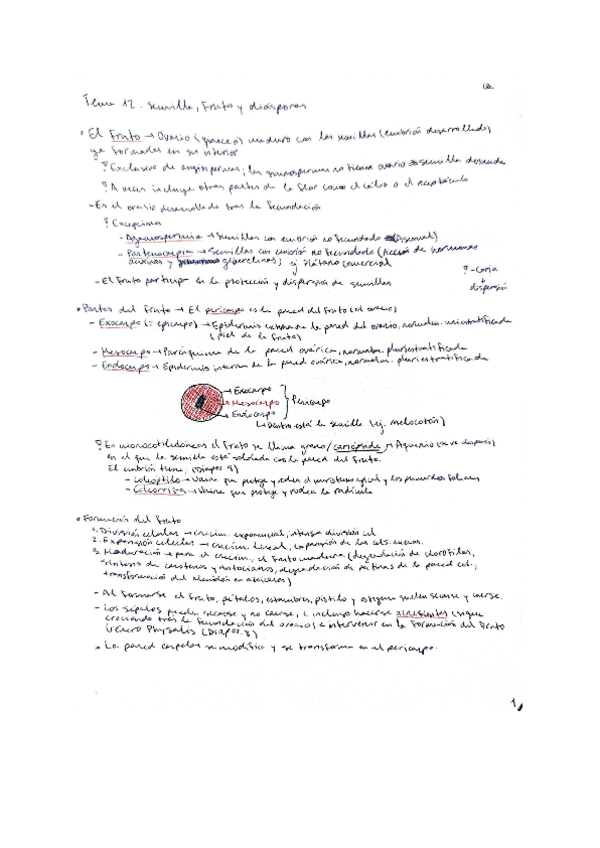 Tema 12. Semilla, Fruto y diásporas
• El fruto → Ovario (gineceo) maduro con las semillas (embrión desarrollado)
ya formadas en su interior
Exclusivo de angiospermas; las gimnospermas no tienen ovario → semilla desnuda
A veces incluye otras partes de la flor como el cáliz o el receptáculo
- Es el ovario desarrollado tras la fecundación
Excepciones
- Agamospermia → Semillas con embrión no fecundado (Asexual)
- Partenocarpia → Semillas con embrión no fecundado (Acción de hormonas
auxinas y giberelinas) ej Plátano comercial
- El fruto participa en la protección y dispersión de semillas
dispersión
• Partes del fruto → El pericarpo es la pared del fruto (el ovario)
- Exocarpo (= epicarpo) → Epidermis externa de la pared del ovario, normalm. uniestratificada
(piel de la fruta)
- Mesocarpo → Parénquima de la pared ovárica, normalm. pluriestratificada
- Endocarpo → Epidermis interna de la pared ovárica, normalm. pluriestratificada
→ Exocarpo
→ Mesocarpo } Pericarpo
→ Endocarpo
↳ Dentro está la semilla (ej. melocotón)
En monocotiledóneas el fruto se llama grano/cariópside → Aquenio (se ve después)
en el que la semilla está soldada con la pared del fruto.
El embrión tiene; (Diapos 4)
- Coleóptilo → Vaina que protege y rodea el meristemo apical y los primordios foliares
- Coleorriza → Vaina que protege y rodea la radícula
• Formación del fruto
1. División celular → crecim. exponencial, intensa división cel.
2. Expansión celular → crecim. lineal, expansión de las céls. nuevas.
3. Maduración → para el crecim., el fruto madura (degradación de clorofilas,
síntesis de carotenos y antocianos, degradación de pectinas de la pared cel.,
transformación del almidón en azúcares)
- Al formarse el fruto, pétalos, estambres, pistilo y estigma suelen secarse y caerse.
- Los sépalos pueden secarse y no caerse, e incluso hacerse acrescentes (siguen
creciendo tras la fecundación del ovario) e intervenir en la formación del fruto
(género Physalis (Diapos. 8)
• La pared carpelar se modifica y se transforma en el pericarpo.
1